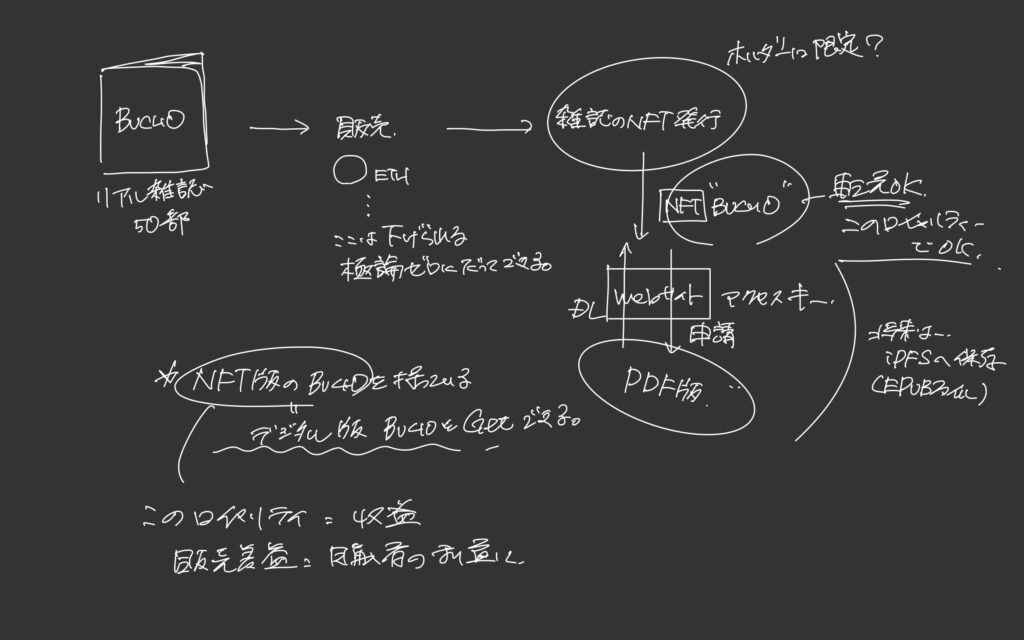 ホルダーに限定?
BUCUO
販売.
雑誌のNFT発行
ETH
リアル雑誌
50部
NFT "BUCUO"
転売OK.
このロイヤルティー
でOK.
ここは下げられる
極論ゼロにだってできる。
DL
Webサイト
アクセスキー.
申請
将来は
IPFSへ保存
(EPUBファイル)
PDF版.
※ NFT版のBUCUOを持ってる
デジタル版 BUCUOを Getできる。
このロイヤリティ = 収益
販売差益 =